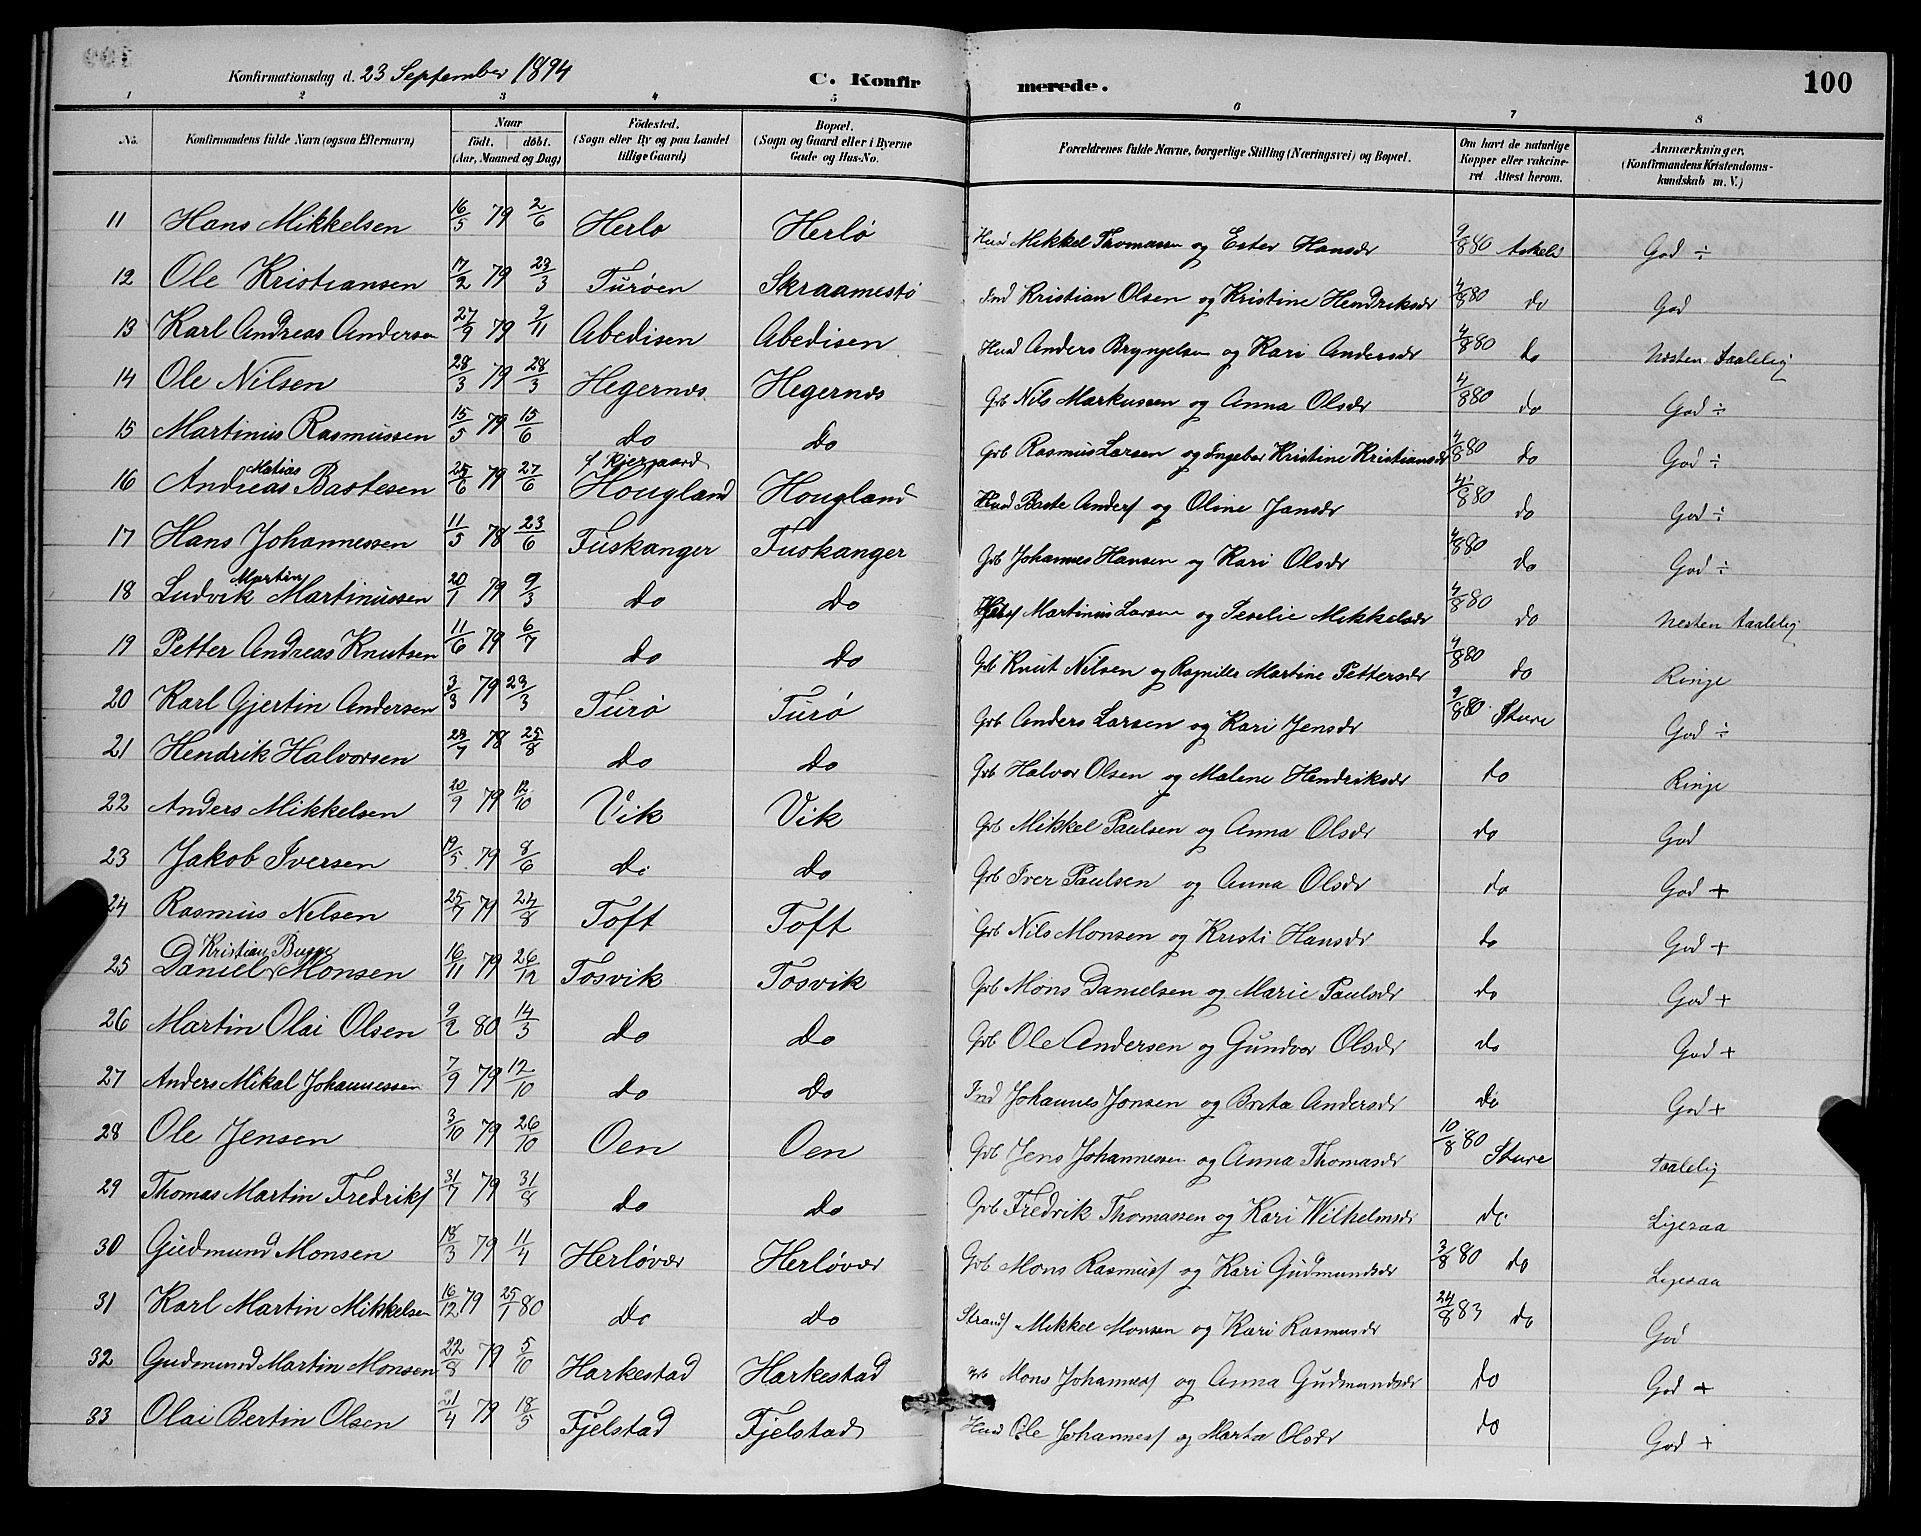 Konfirmationsdag d. 23 September 1894 C. Konfir merede. 100
1 2 3 4 5 6 7 8
No. Konfirmandens fulde Navn (ogsaa Efternavn) Naar födt. döbt. (Aar, Maaned og Dag) Födested. (Sogn eller By og paa Landet tillige Gaard) Bopæl. (Sogn og Gaard eller i Byerne Gade og Hus-No. Forældrenes fulde Navne, borgerlige Stilling (Næringsvei) og Bopæl. Om havt de naturlige Kopper eller vakcineret Attest herom. Anmærkninger. (Konfirmandens Kristendomskundskab m. V.)
11 Hans Mikkelsen 16/5 79 2/6 Herlo Herlö Husd Mikkel Thomassen og Ester Hansdr 9/8 80 God ÷
12 Ole Kristiansen 17/2 79 23/3 Turöen Skraamestø Ind Kristian Olsen og Kristine Hendriksdr 4/8 80 do God
13 Karl Andreas Andersen 27/9 79 9/11 Abedisen Abedisen Husd Anders Bryngelsen og Kari Andersdr 4/8 80 do Nesten Taalelig
14 Ole Nilsen 28/3 79 28/3 Hegernes Hegernes Grb Nils Markussen og Anna Olsdr 4/8 80 do God ÷
15 Martinus Rasmussen 15/5 79 15/6 do do Grb Rasmus Larsen og Ingebor Kristine Kristiansdr 4/8 80 do God ÷
16 Andreas Matias Bastesen 25/6 79 27/6 Hougland Hougland Husd Baste Anders og Oline Jansdr 4/8 80 do God ÷
17 Hans Johannessen 11/5 78 23/6 Fuskanger Fuskanger Grb Johannes Hansen og Kari Olsdr 4/8 80 do God ÷
18 Ludvik Martin Martinussen 20/1 79 9/3 do do Martinus Larsen og Seselie Mikkelsdr 4/8 80 do Nesten taalelig
19 Petter Andreas Knutsen 11/6 79 6/7 do do Grb Knut Nilsen og Ragnilda Martine Pettersdr 4/8 80 do Ringe
20 Karl Gjertin Andersen 3/3 79 23/3 Turø Turø Grb Anders Larsen og Kari Jensdr 9/8 80 Sture God ÷
21 Hendrik Halvorsen 23/7 78 25/8 do do Grb Halvor Olsen og Malene Hendriksdr do Ringe
22 Anders Mikkelsen 20/9 79 12/10 Vik Vik Grb Mikkel Paulsen og Anna Olsdr do God
23 Jakob Iversen 19/5 79 8/6 do do Grb Iver Paulsen og Anna Olsdr do God +
24 Rasmus Nilsen 25/7 79 24/8 Toft Toft Grb Nils Monsen og Kristi Hansdr do God +
25 Daniel Kristian Bugge Monsen 16/11 79 26/12 Tosvik Tosvik Grb Mons Danielsen og Marie Paulsdr do God +
26 Martin Olai Olsen 9/2 80 14/3 do do Grb Ole Andersen og Gundvor Olsdr do God +
27 Anders Mikal Johannessen 7/9 79 12/10 do do Ind Johannes Jonsen og Brita Andersdr do God +
28 Ole Jensen 3/10 79 26/10 Oen Oen Grb Jens Johannessen og Anna Thomasdr 10/8 80 Sture Taalelig
29 Thomas Martin Fredriks 31/7 79 31/8 do do Grb Fredrik Thomassen og Kari Wilhelmsdr do Ligesaa
30 Gudmund Monsen 18/3 79 11/4 Herløvær Herløvær Grb Mons Rasmuss og Kari Gudmundsdr 3/8 80 do Ligesaa
31 Karl Martin Mikkelsen 16/12 79 25/1 80 do do Strands Mikkel Monsen og Kari Rasmusdr 24/8 83 do God
32 Gudmund Martin Monsen 22/8 79 5/10 Harkestad Harkestad Grb Mons Johanness og Anna Gudmundsdr do God +
33 Olai Bertin Olsen 21/4 79 18/5 Fjelstad Fjelstad Husd Ole Johanness og Marta Olsdr do God +